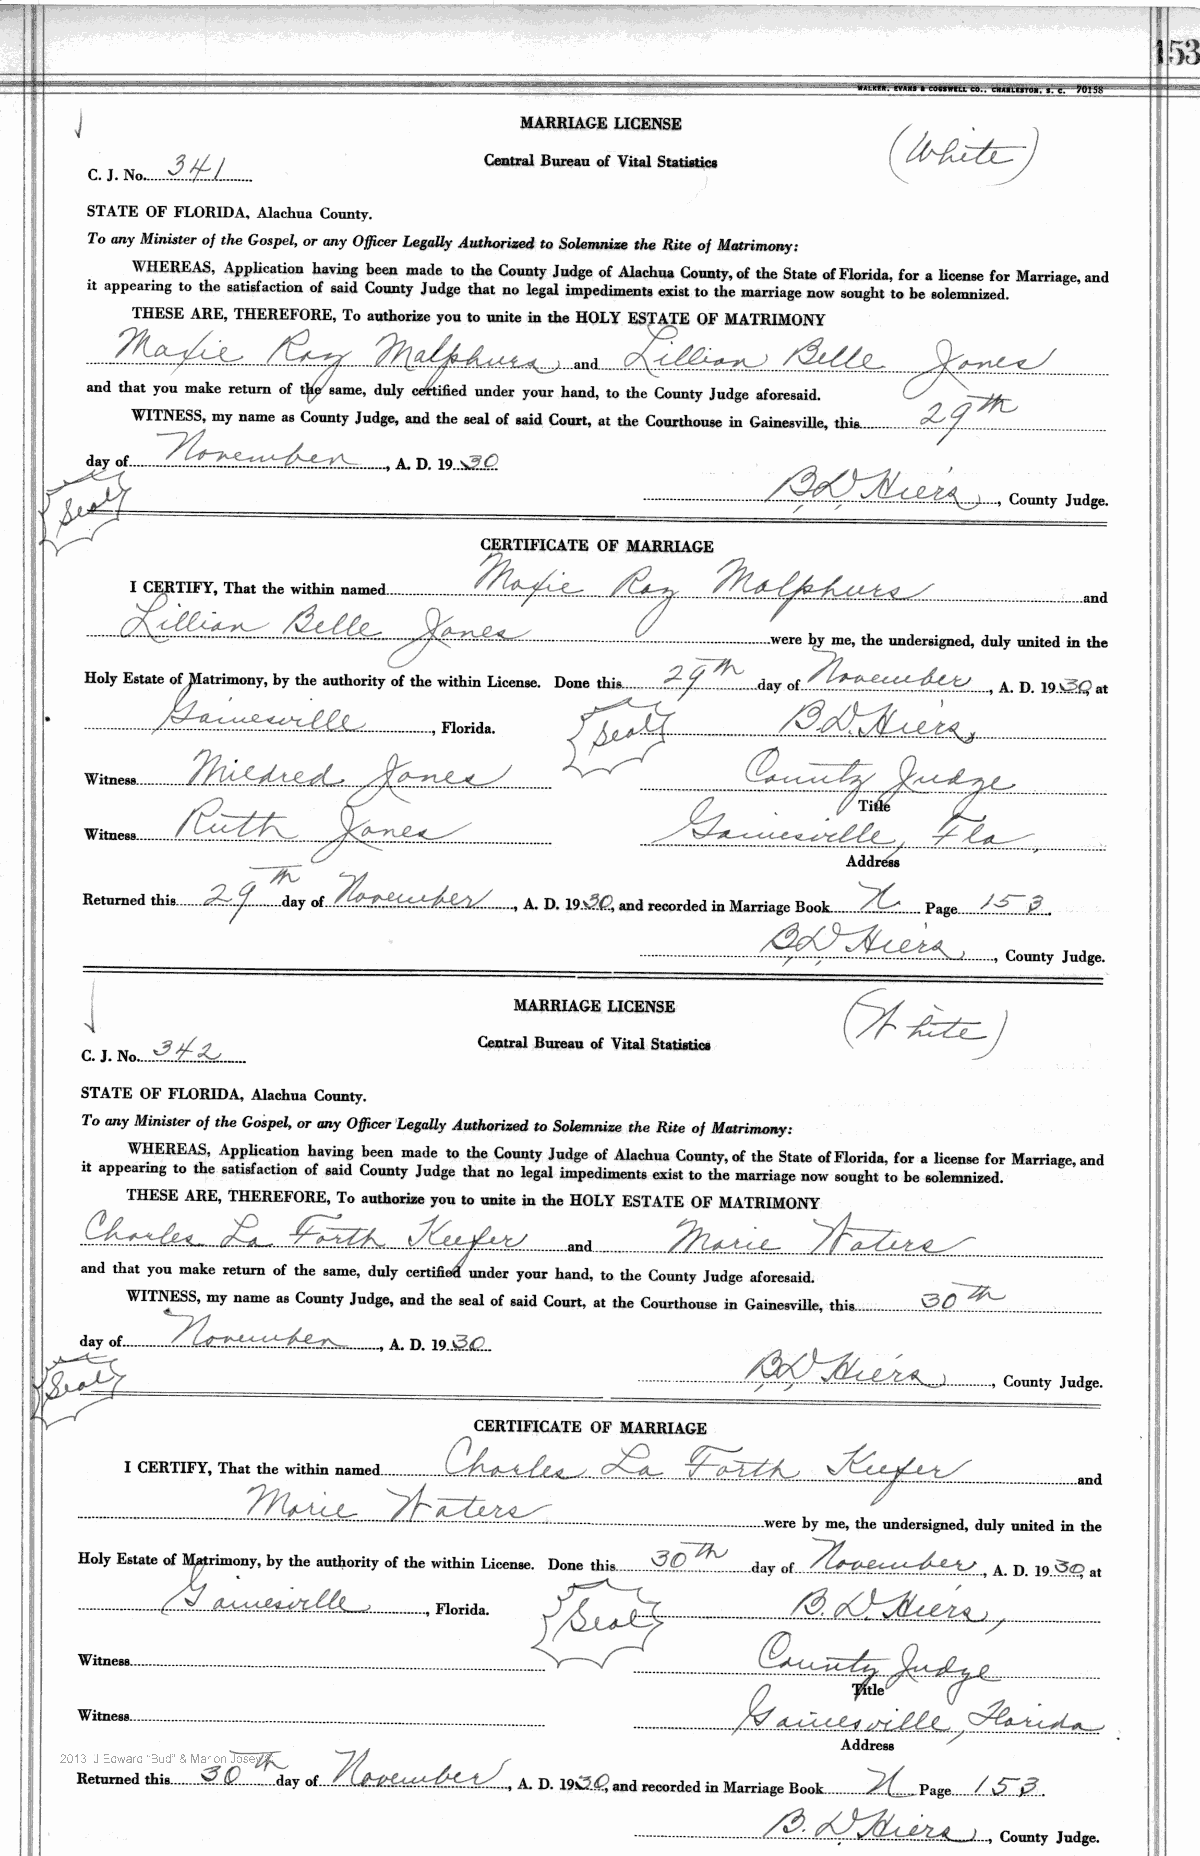 153
WALKER, EVANS & COGSWELL CO., CHARLESTON, S. C. 70158
MARRIAGE LICENSE
(White)
Central Bureau of Vital Statistics
C. J. No. 341
STATE OF FLORIDA, Alachua County.
To any Minister of the Gospel, or any Officer Legally Authorized to Solemnize the Rite of Matrimony:
WHEREAS, Application having been made to the County Judge of Alachua County, of the State of Florida, for a license for Marriage, and
it appearing to the satisfaction of said County Judge that no legal impediments exist to the marriage now sought to be solemnized.
THESE ARE, THEREFORE, To authorize you to unite in the HOLY ESTATE OF MATRIMONY
Maxie Ray Malphurs and Lillian Belle Jones
and that you make return of the same, duly certified under your hand, to the County Judge aforesaid.
WITNESS, my name as County Judge, and the seal of said Court, at the Courthouse in Gainesville, this 29th
day of November, A. D. 1930
Seal
B. D. Hiers, County Judge.
CERTIFICATE OF MARRIAGE
I CERTIFY, That the within named Maxie Ray Malphurs and
Lillian Belle Jones were by me, the undersigned, duly united in the
Holy Estate of Matrimony, by the authority of the within License. Done this 29th day of November, A. D. 1930, at
Gainesville, Florida. Seal B. D. Hiers,
Witness Mildred Jones County Judge
Title
Witness Ruth Jones Gainesville, Fla.
Address
Returned this 29th day of November, A. D. 1930, and recorded in Marriage Book N Page 153.
B. D. Hiers, County Judge.
MARRIAGE LICENSE
(White)
Central Bureau of Vital Statistics
C. J. No. 342
STATE OF FLORIDA, Alachua County.
To any Minister of the Gospel, or any Officer Legally Authorized to Solemnize the Rite of Matrimony:
WHEREAS, Application having been made to the County Judge of Alachua County, of the State of Florida, for a license for Marriage, and
it appearing to the satisfaction of said County Judge that no legal impediments exist to the marriage now sought to be solemnized.
THESE ARE, THEREFORE, To authorize you to unite in the HOLY ESTATE OF MATRIMONY
Charles La Forth Keefer and Marie Waters
and that you make return of the same, duly certified under your hand, to the County Judge aforesaid.
WITNESS, my name as County Judge, and the seal of said Court, at the Courthouse in Gainesville, this 30th
day of November, A. D. 1930
Seal
B. D. Hiers, County Judge.
CERTIFICATE OF MARRIAGE
I CERTIFY, That the within named Charles La Forth Keefer and
Marie Waters were by me, the undersigned, duly united in the
Holy Estate of Matrimony, by the authority of the within License. Done this 30th day of November, A. D. 1930, at
Gainesville, Florida. Seal B. D. Hiers,
Witness County Judge
Title
Witness Gainesville, Florida
Address
2013 J Edward "Bud" & Marion Josey
Returned this 30th day of November, A. D. 1930, and recorded in Marriage Book N Page 153.
B. D. Hiers, County Judge.